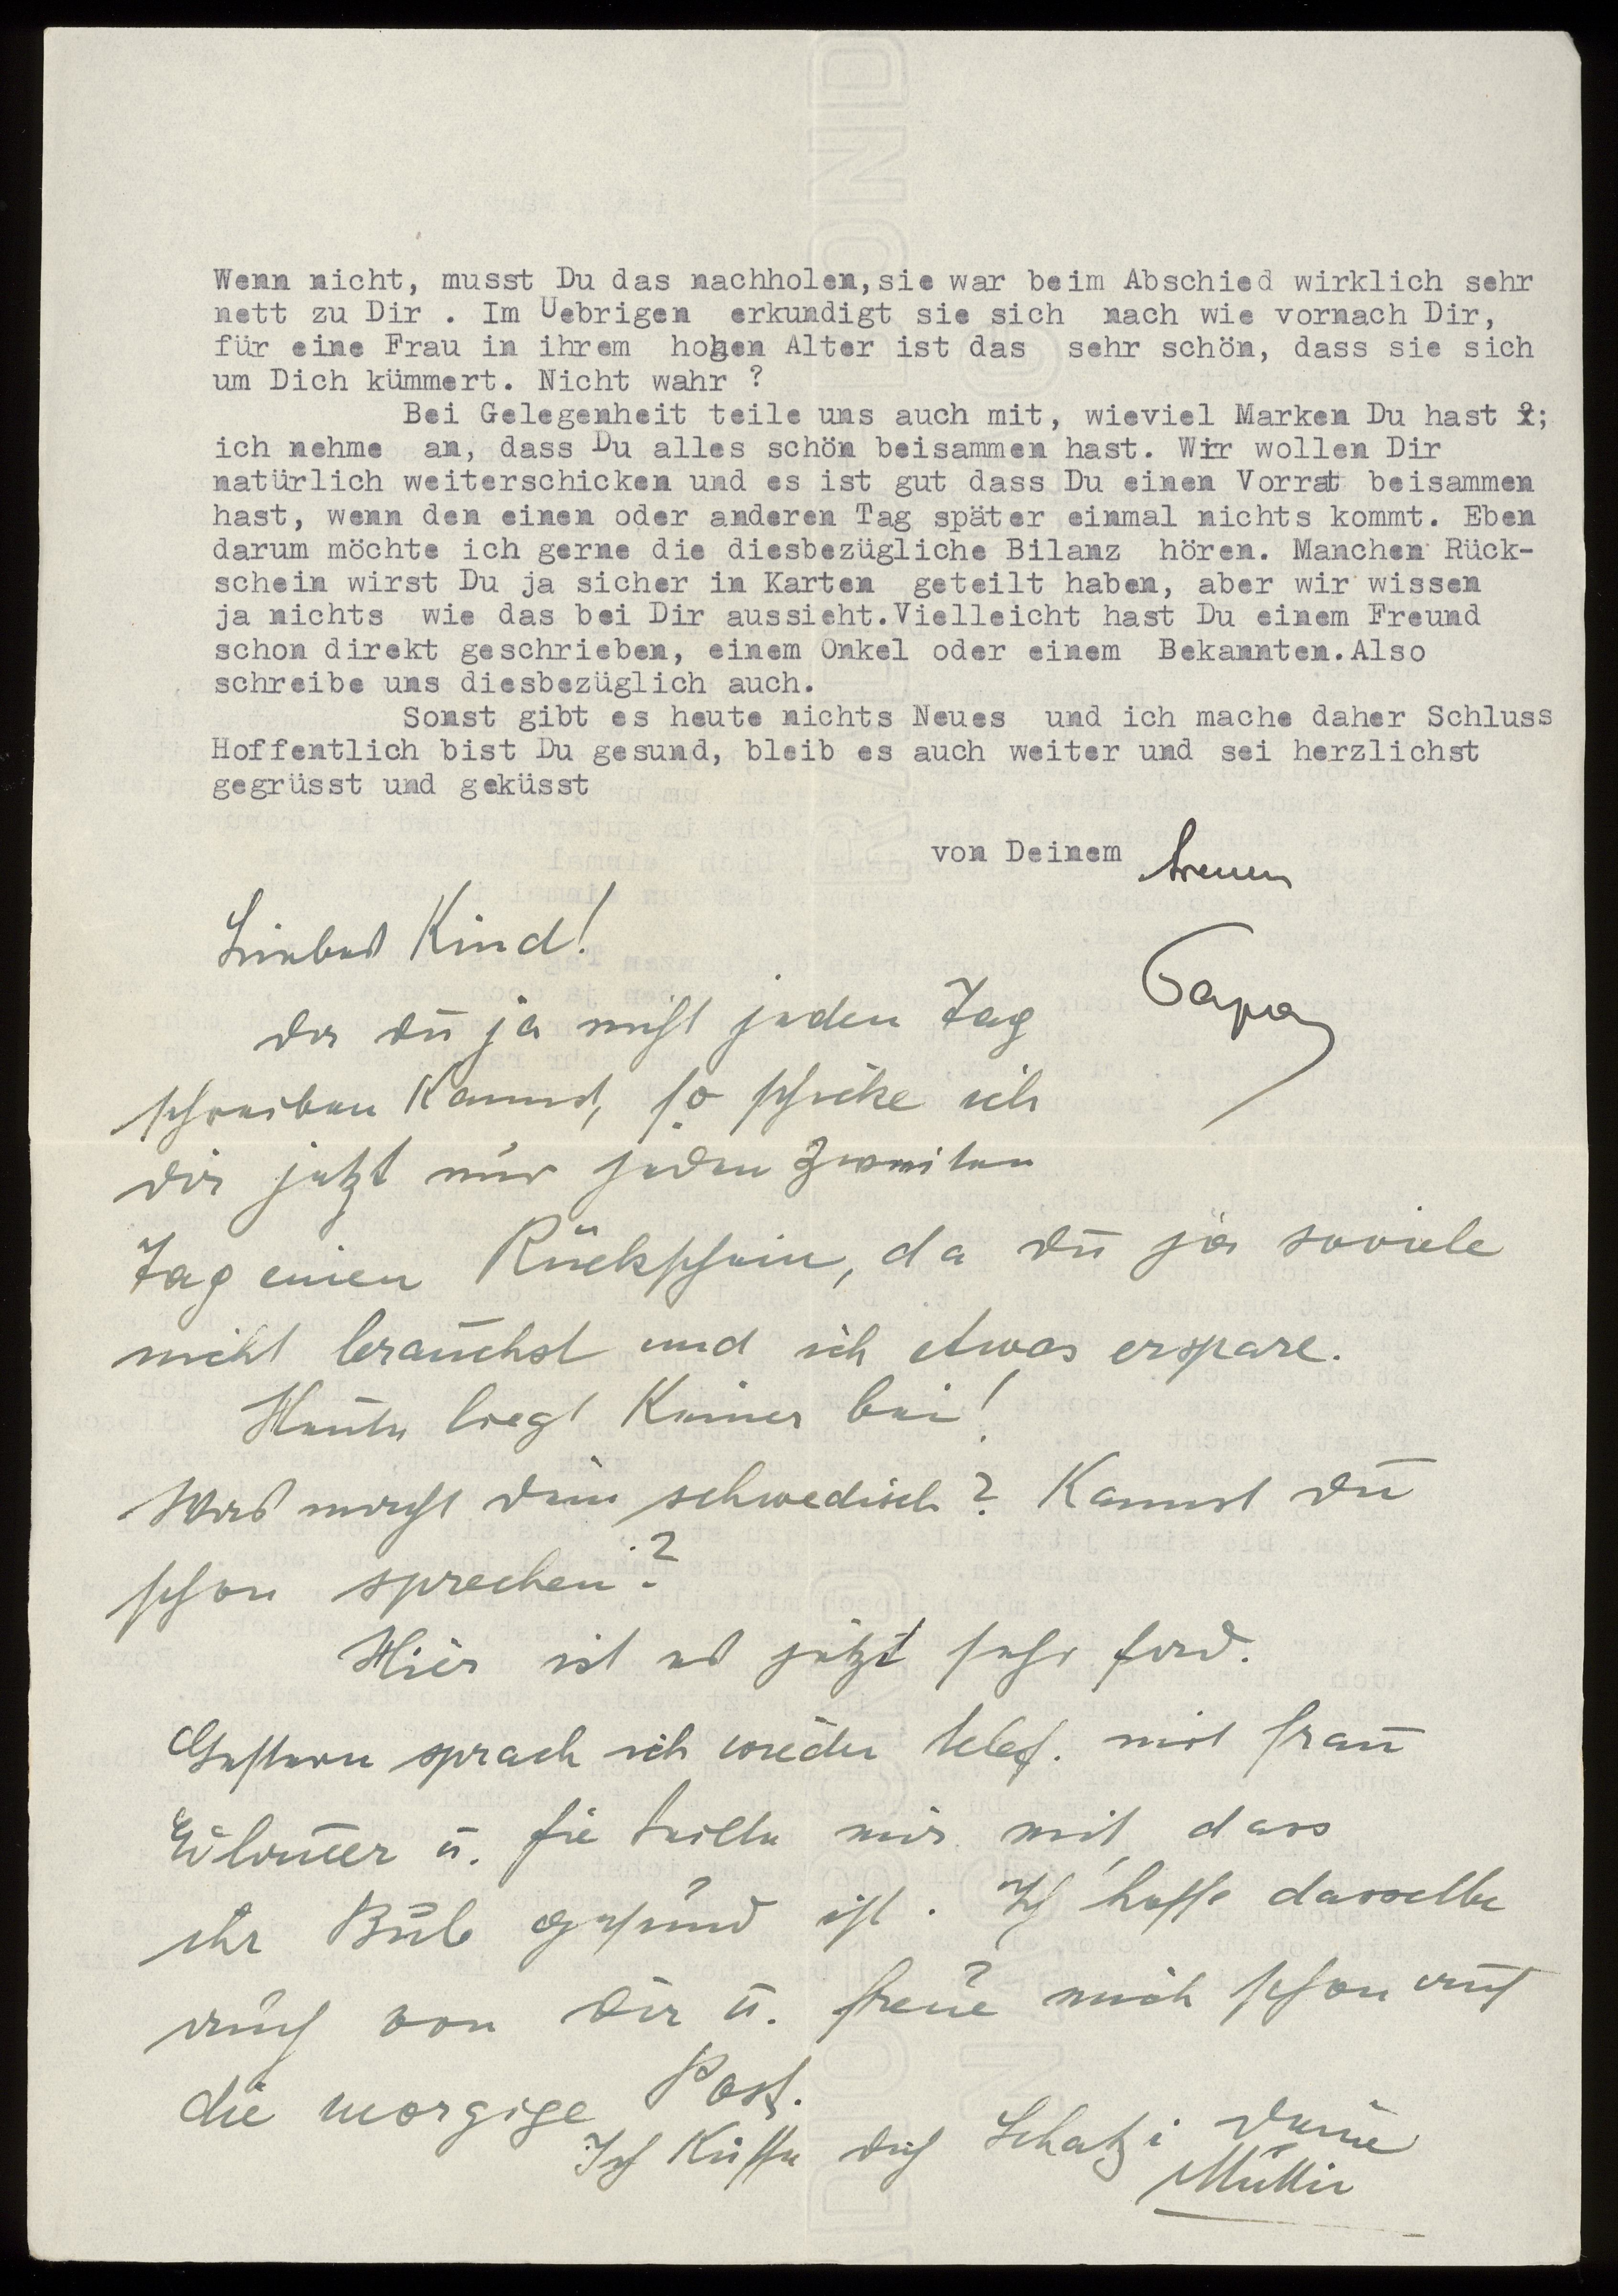 Wenn nicht, musst Du das nachholen,sie war beim Abschied wirklich sehr
nett zu Dir . Im Uebrigen erkundigt sie sich nach wie vornach Dir,
für eine Frau in ihrem hohen Alter ist das sehr schön, dass sie sich
um Dich kümmert. Nicht wahr ?
Bei Gelegenheit teile uns auch mit, wieviel Marken Du hast ?;
ich nehme an, dass Du alles schön beisammen hast. Wir wollen Dir
natürlich weiterschicken und es ist gut dass Du einen Vorrat beisammen
hast, wenn den einen oder anderen Tag später einmal nichts kommt. Eben
darum möchte ich gerne die diesbezügliche Bilanz hören. Manchen Rück-
schein wirst Du ja sicher in Karten geteilt haben, aber wir wissen
ja nichts wie das bei Dir aussieht.Vielleicht hast Du einem Freund
schon direkt geschrieben, einem Onkel oder einem Bekannten.Also
schreibe uns diesbezüglich auch.
Sonst gibt es heute nichts Neues und ich mache daher Schluss
Hoffentlich bist Du gesund, bleib es auch weiter und sei herzlichst
gegrüsst und geküsst
von Deinem treuen
Papa
Liebes Kind!
Da du ja nicht jeden Tag
schreiben kannst, so schicke ich
dir jetzt nur jeden zweiten
Tag einen Rückschein, da du ja soviele
nicht brauchst und ich etwas erspare.
Heute liegt keiner bei!
Was macht dein schwedisch? Kannst du
schon sprechen?
Hier ist es jetzt sehr fad.
Gestern sprach ich wieder telef. mit Frau
u. sie teilte mir mit, dass
ihr Bub gesund ist. Ich hoffe dasselbe
auch von dir u. freue mich schon auf
die morgige Post.
Ich küsse dich Schatzi deine
Mutti